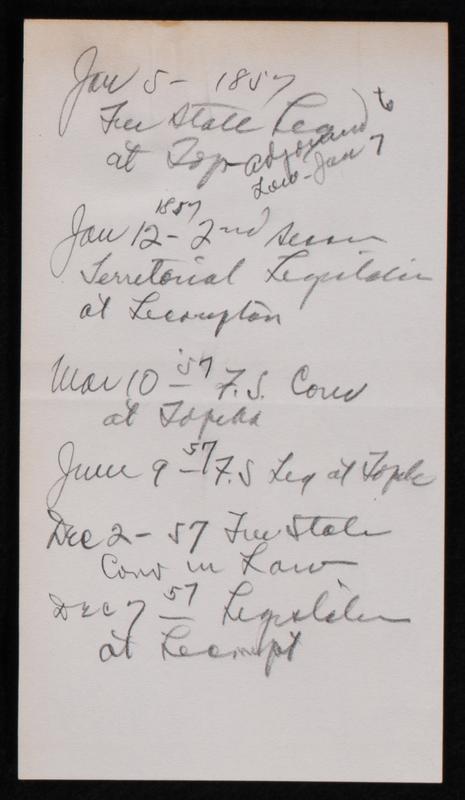 Jan 5 - 1857
Free State Leg) to
at Top - adjourned
Law - Jan 7
1857
Jan 12 - 2nd Session
Territorial Legislature
at Lecompton
Mar 10 - 57 F.S. Conv
at Topeka
June 9 - 57 F.S Leg at Topeka
Dec 2 - 57 Free State
Conv in Law
Dec 7 57 Legislature
at Lecompt